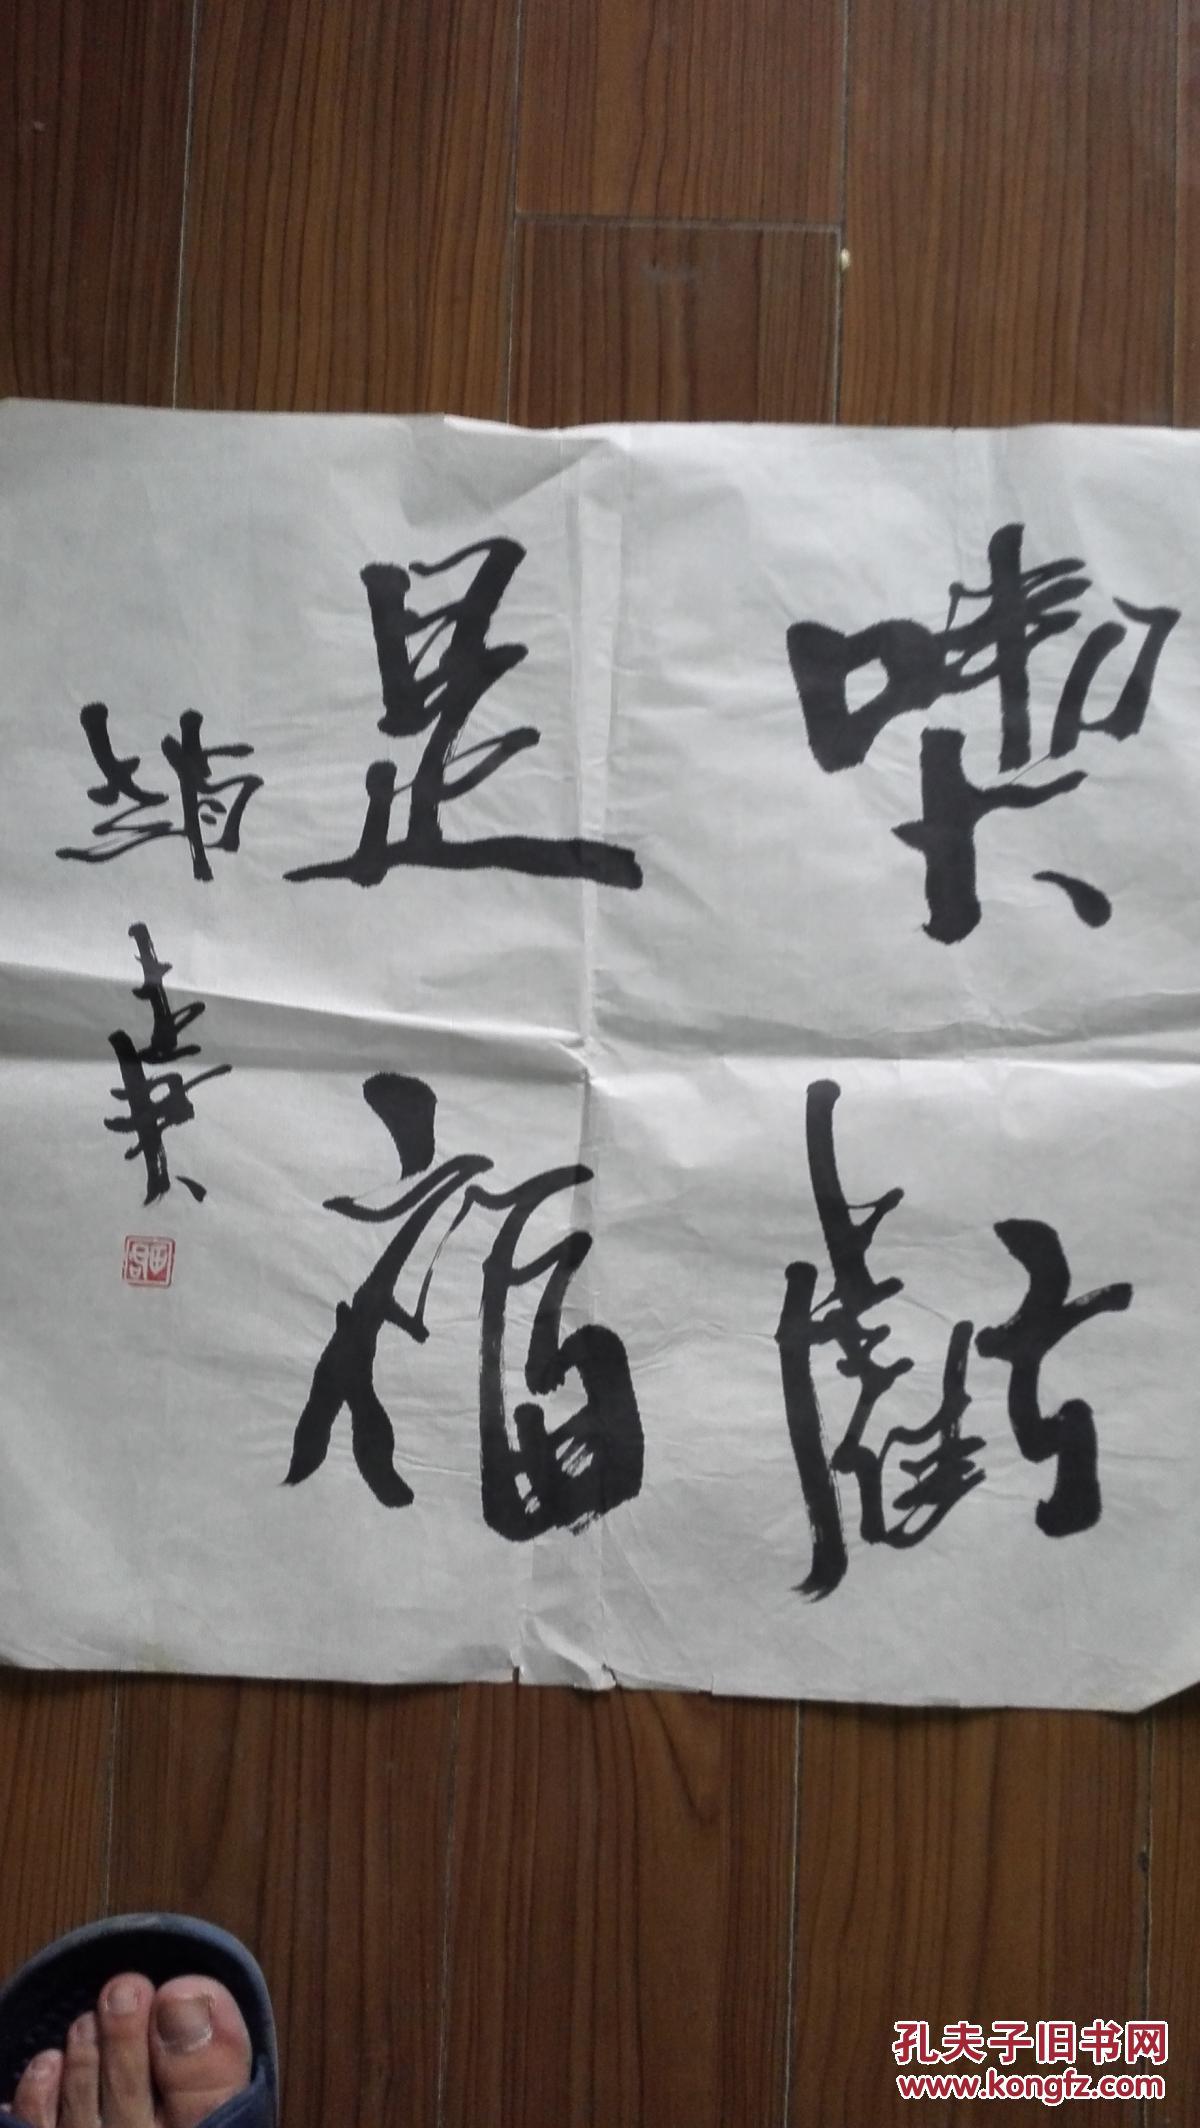 喫虧
是福
孔夫子旧书网
www.kongfz.com